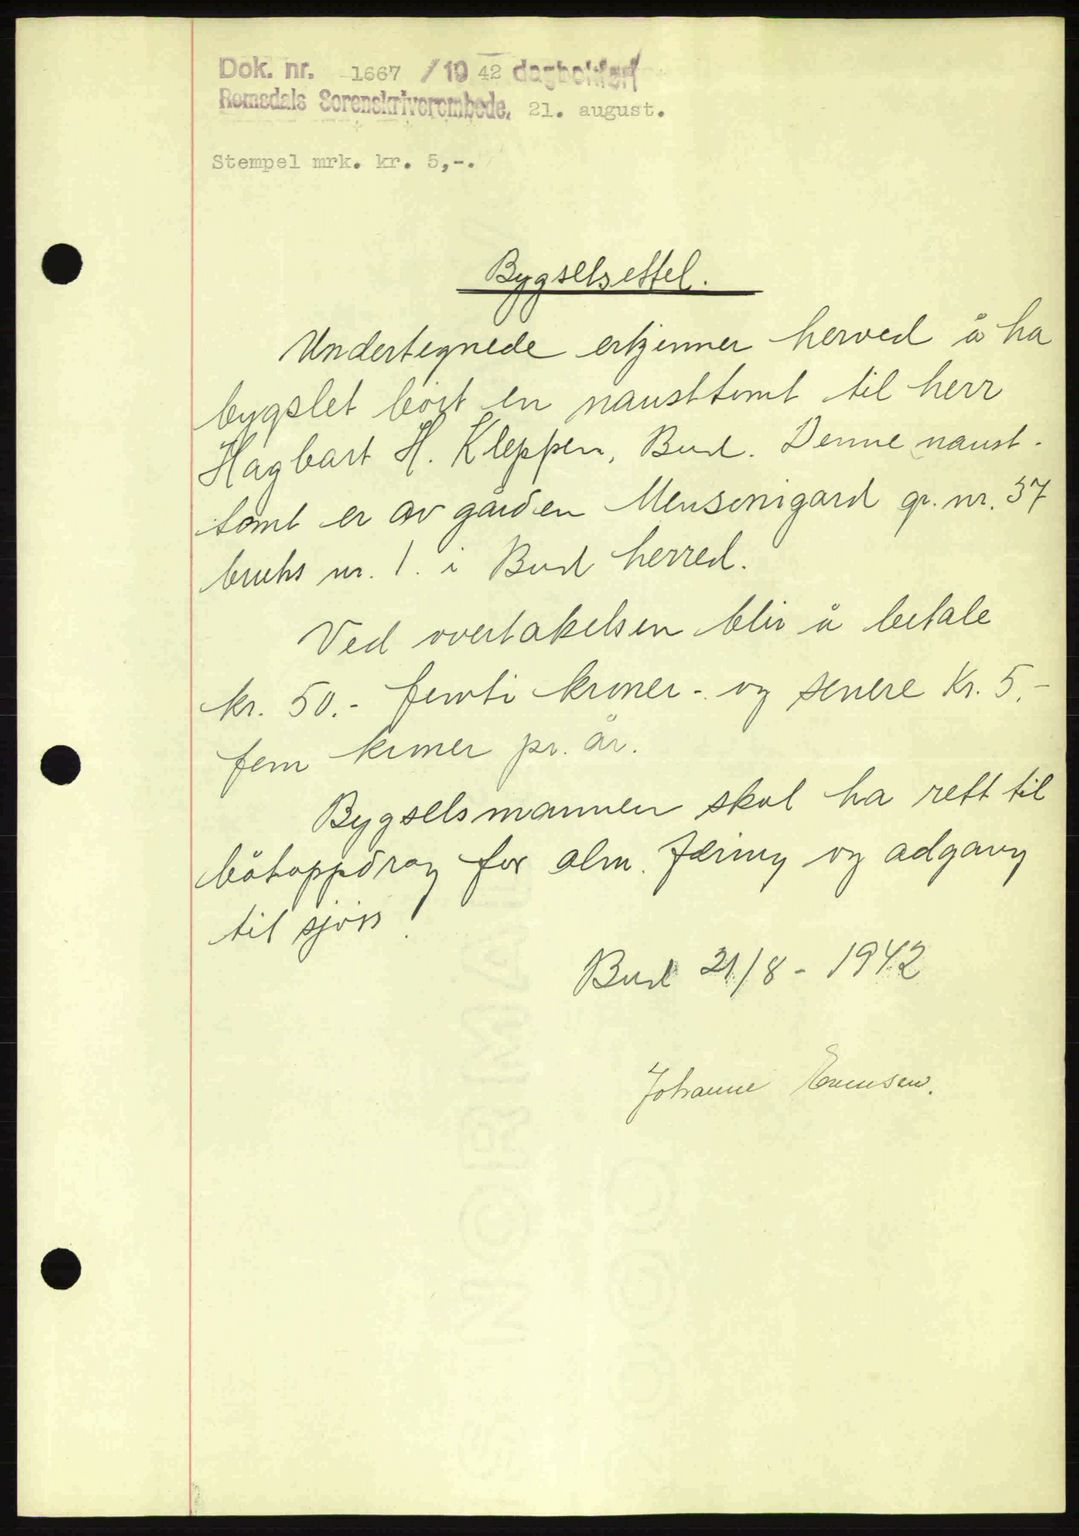 Dok. nr. 1667 /19 42 dagbokført
Romsdals Sorenskriverembede, 21. august.
Stempel mrk. kr. 5,-.
Bygselsettel.
Undertegnede erkjenner herved å ha
bygslet bort en nausttomt til herr
Hagbart H. Kleppen, Bud. Denne naust-
tomt er av gården Monsemigard gr. nr. 37
bruks nr. 1. i Bud herred.
Ved overtakelsen blir å betale
kr. 50.- femti kroner - og senere Kr. 5.-
fem kroner pr. år.
Bygselsmannen skal ha rett til
båtoppdrag for alm. færing og adgang
til sjøss.
Bud 21/8 - 1942
Johanne
NORMAL